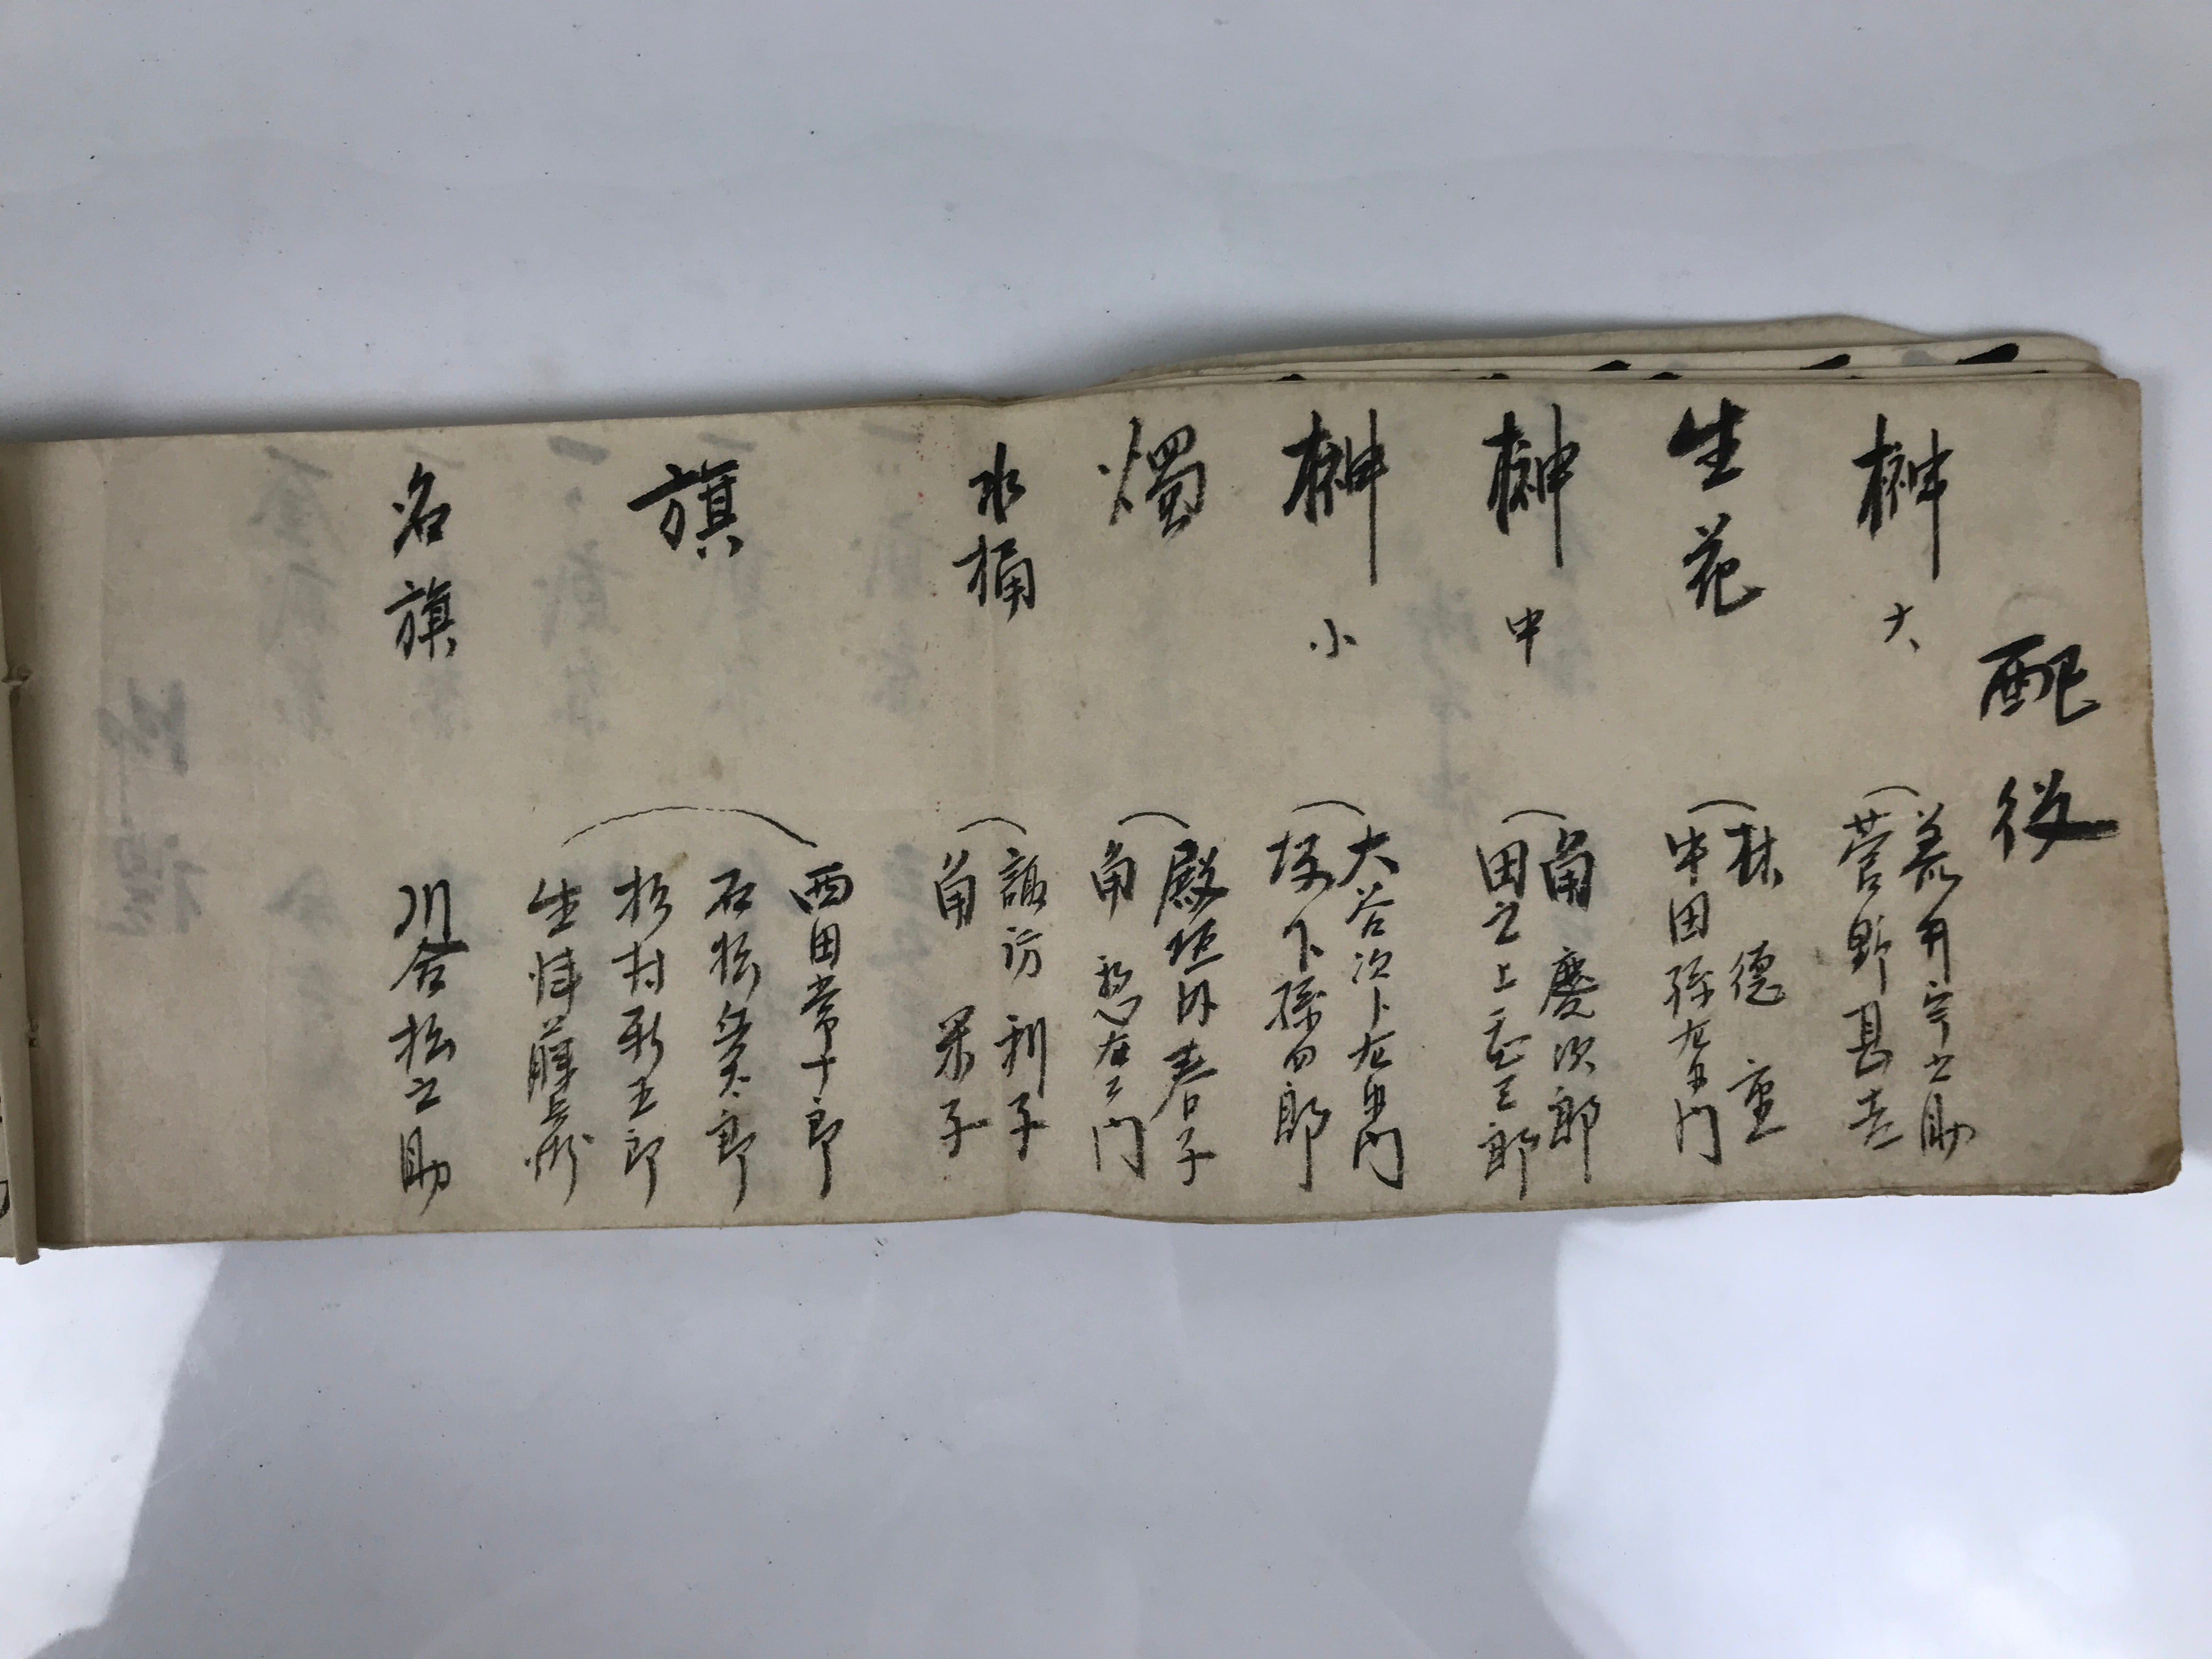 配役
榊 大
菅野甚吉
生花
林 徳重
中田孫右衛門
榊 中
角 慶次郎
田之上 三郎
榊 小
大谷次卜右衛門
坂下孫四郎
燭
殿垣外春子
角 惣左衛門
水桶
諏訪利子
角 栄子
旗
西田常十郎
石松 太郎
杉村彩五郎
生 藤兵衛
名旗
川合松之助